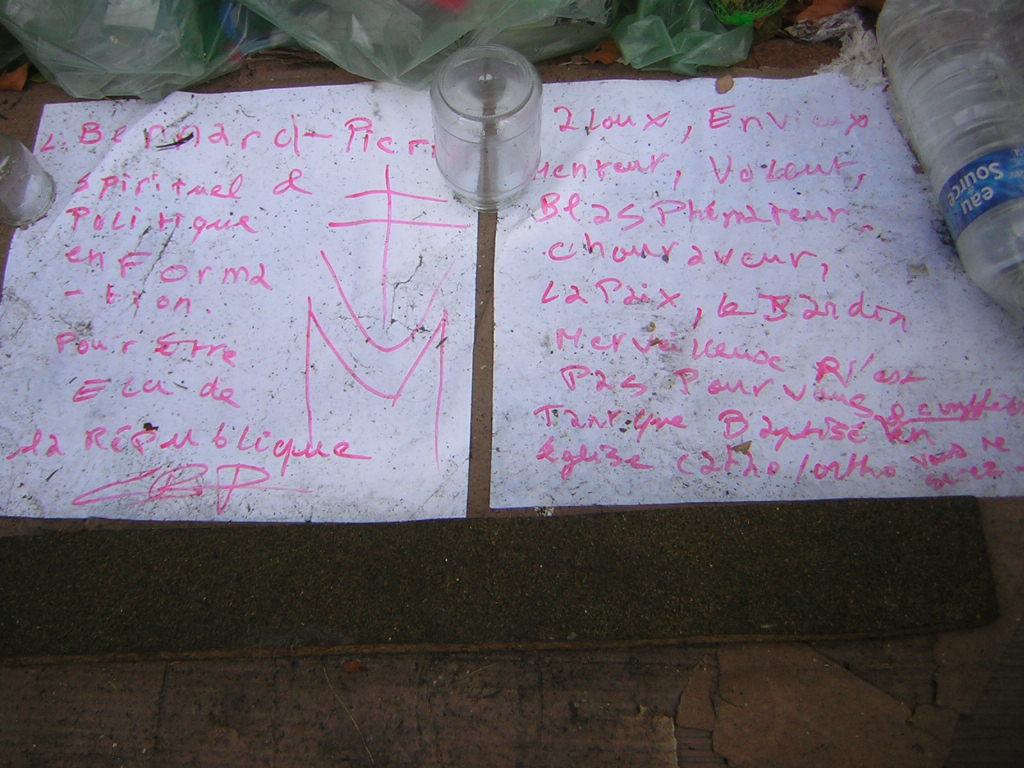 L. Bernard-Pier
spirituel &
Politique
en Forma
-tion.
Pour Être
Elu de
la République
CBP
aloux, Envieux
menteur, Voleur,
Blasphémateur,
chouraveur,
La Paix, le Bardin
Merveilleuse n'est
Pas Pour vous
Tant que Baptisé en
église catho/ortho vous ne
serez
eau
Source